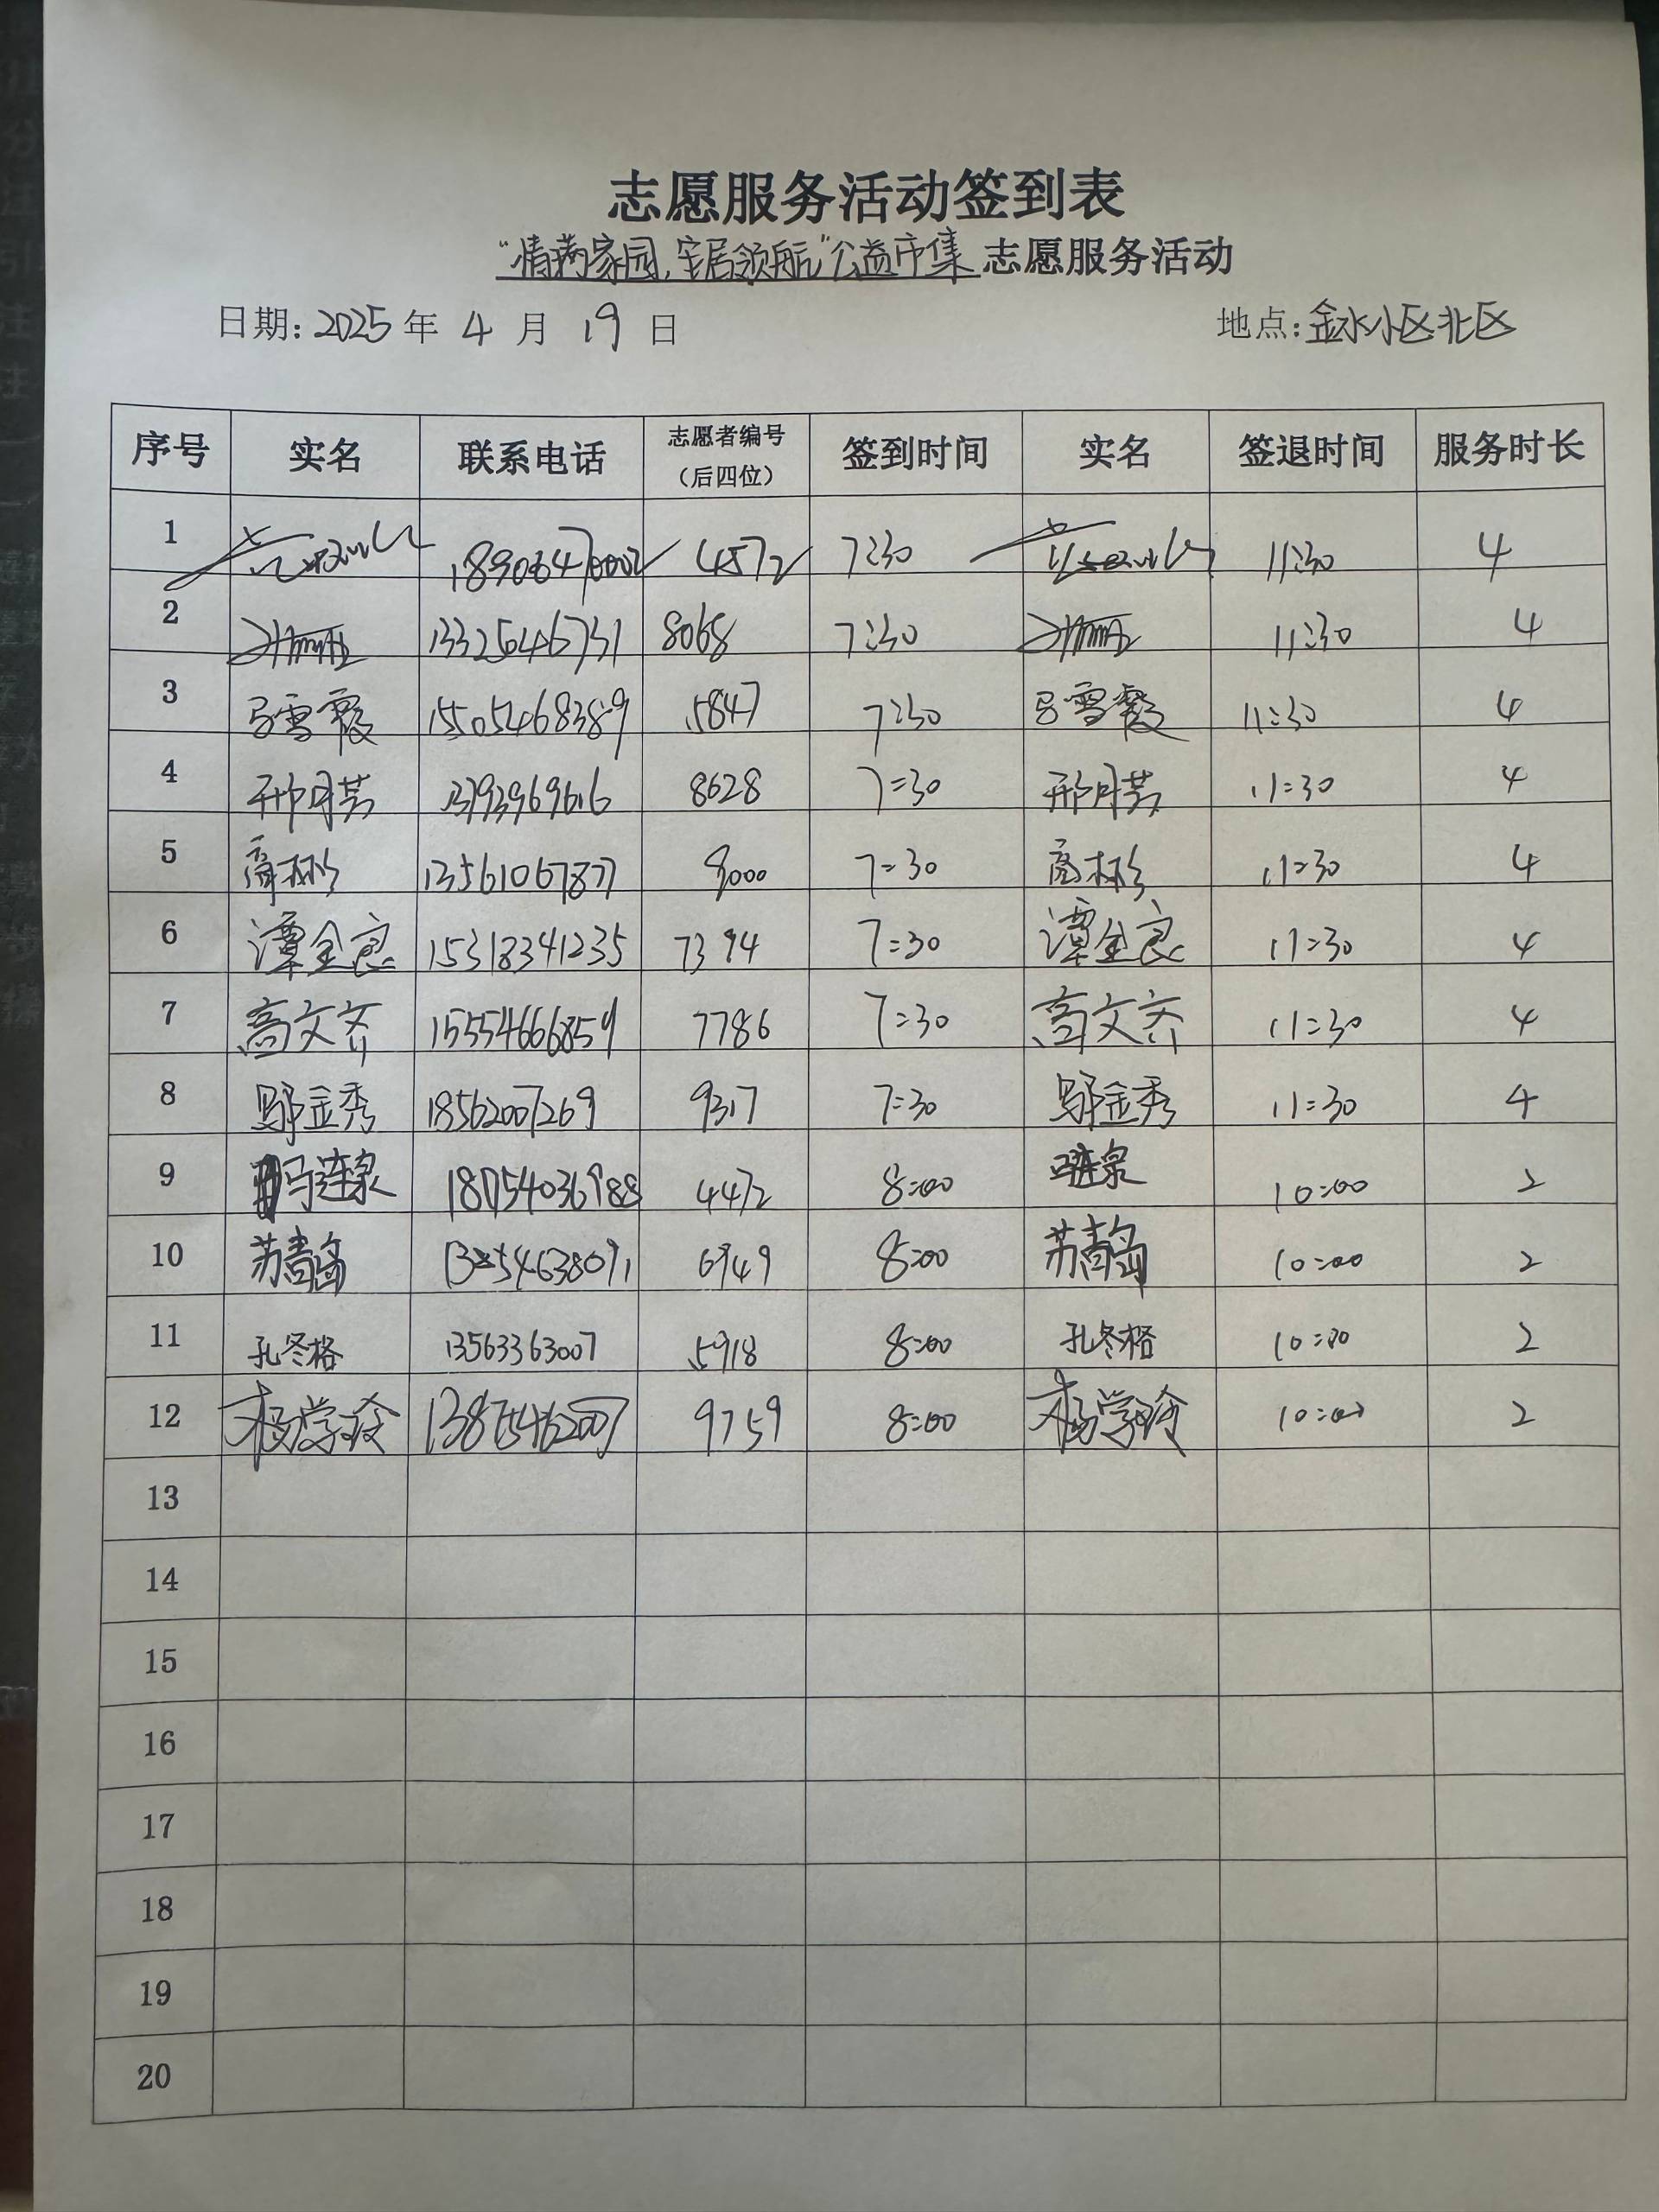 志愿服务活动签到表
"情满家园,安居领航"公益市集 志愿服务活动
日期: 2025 年 4 月 19 日 地点: 金水小区北区
序号 实名 联系电话 志愿者编号（后四位） 签到时间 实名 签退时间 服务时长
1 18906470002 4572 7:30 11:30 4
2 13325046731 8068 7:30 11:30 4
3 马雪霞 15505468389 5847 7:30 马雪霞 11:30 4
4 邢月芸 13793969616 8628 7:30 邢月芸 11:30 4
5 13561067877 9000 7:30 11:30 4
6 谭金良 15318341235 7394 7:30 谭金良 11:30 4
7 高文齐 15554666859 7786 7:30 高文齐 11:30 4
8 鄢金秀 18562007269 9317 7:30 鄢金秀 11:30 4
9 马连泉 18754036988 4472 8:00 马连泉 10:00 2
10 苏青岛 6949 8:00 苏青岛 10:00 2
11 孔冬格 13563363007 5918 8:00 孔冬格 10:00 2
12 杨学玲 9759 8:00 杨学玲 10:00 2
13
14
15
16
17
18
19
20